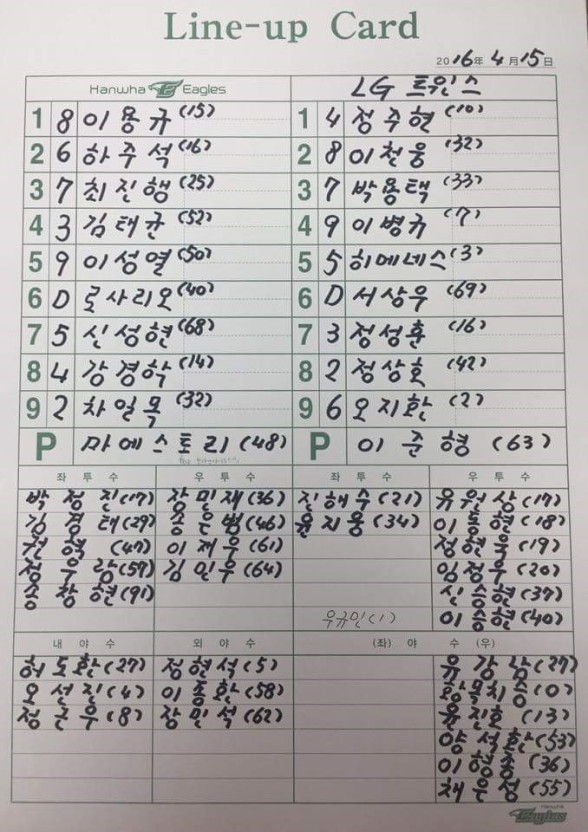 Line-up Card
2016年 4月 15日
Hanwha Eagles LG 트윈스
1 8 이용규 (15) 1 4 정주현 (10)
2 6 하주석 (16) 2 8 이천웅 (32)
3 7 최진행 (25) 3 7 박용택 (33)
4 3 김태균 (52) 4 9 이병규 (7)
5 9 이성열 (50) 5 5 히메네스 (3)
6 D 로사리오 (40) 6 D 서상우 (69)
7 5 신성현 (68) 7 3 정성훈 (16)
8 4 강경학 (14) 8 2 정상호 (42)
9 2 차일목 (32) 9 6 오지환 (2)
P 마에스토리 (48) P 이준형 (63)
좌투수 우투수 좌투수 우투수
박정진 (17) 장민재 (36) 진해수 (21) 유원상 (17)
김경태 (29) 송은범 (46) 윤지웅 (34) 이동현 (18)
권혁 (47) 이재우 (61) 정현욱 (19)
정우람 (57) 김민우 (64) 임정우 (20)
송창현 (91) 신승현 (37)
우규민 (1) 이승현 (40)
내야수 외야수 (좌) 야수 (우)
허도환 (27) 정현석 (5) 유강남 (27)
오선진 (4) 이종환 (58) 황목치승 (0)
정근우 (8) 장민석 (62) 윤진호 (13)
양석환 (53)
이형종 (36)
채은성 (55)
Hanwha Eagles